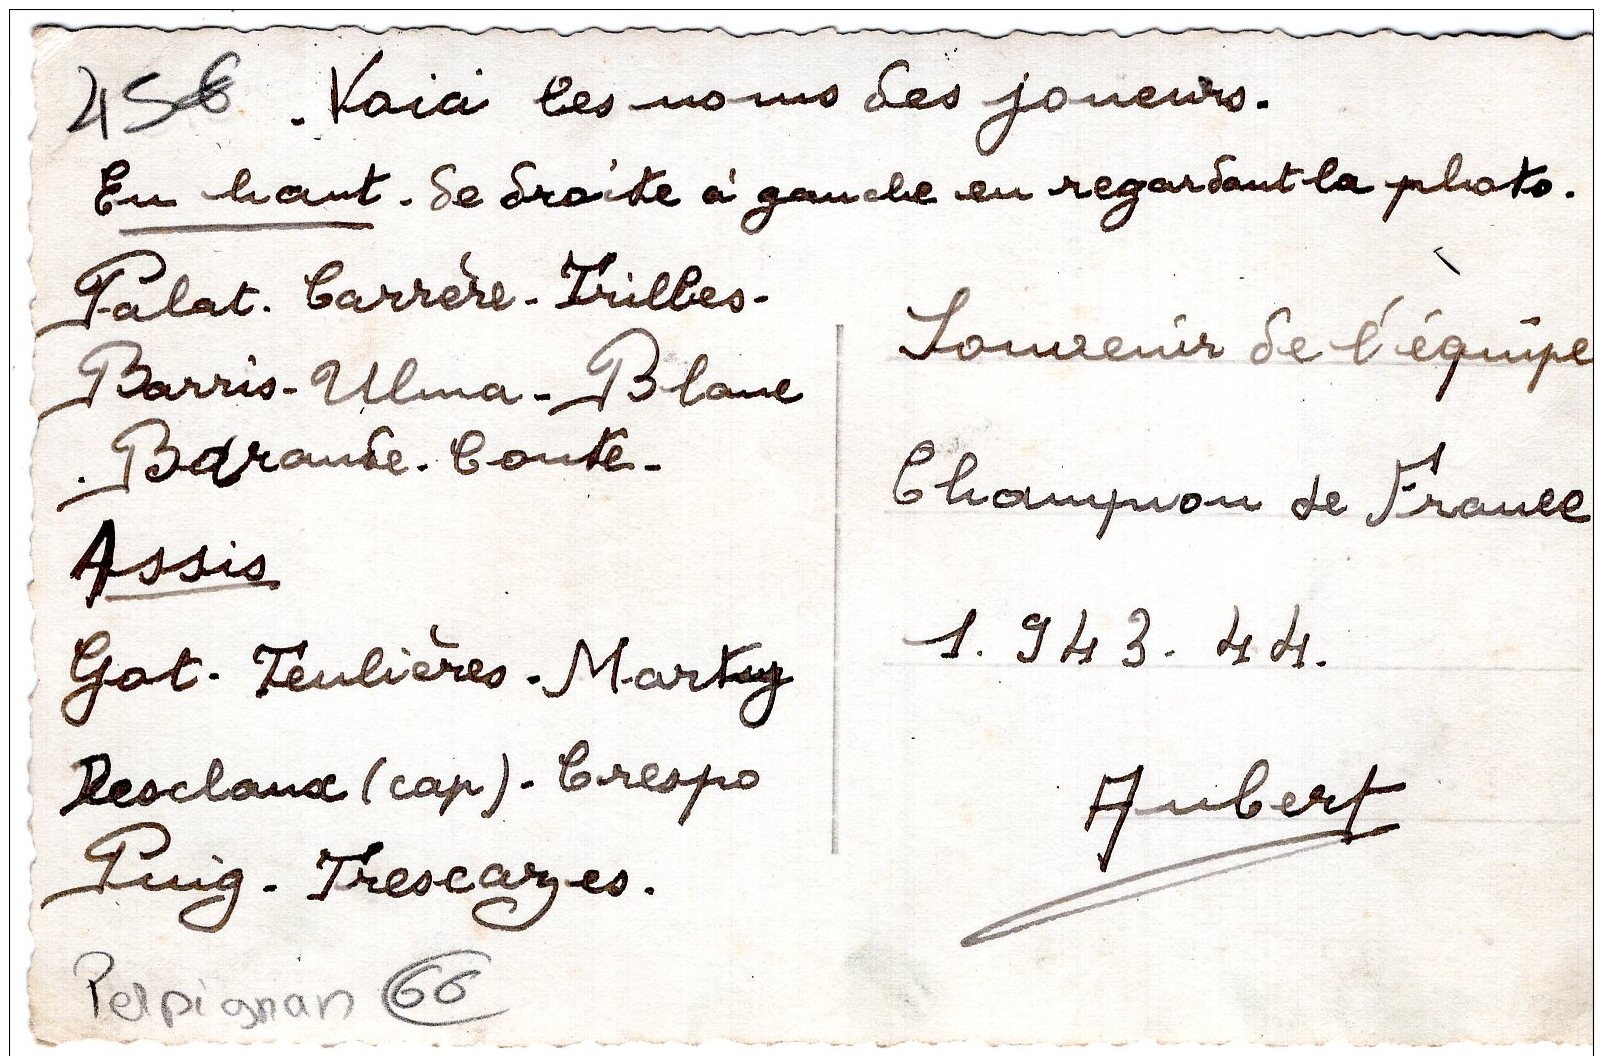 45€
. Voici les noms des joueurs.
En haut. de droite à gauche en regardant la photo.
Palat. Carrère - Trilles -
Barris - Ulma - Blanc
. Barande. Conte -
Assis
Got. Teulières. Marty
Desclaux (cap). Crespo
Puig - Trescazes.
Perpignan 66
Souvenir de l'équipe
Champion de France
1.943.44.
Aubert